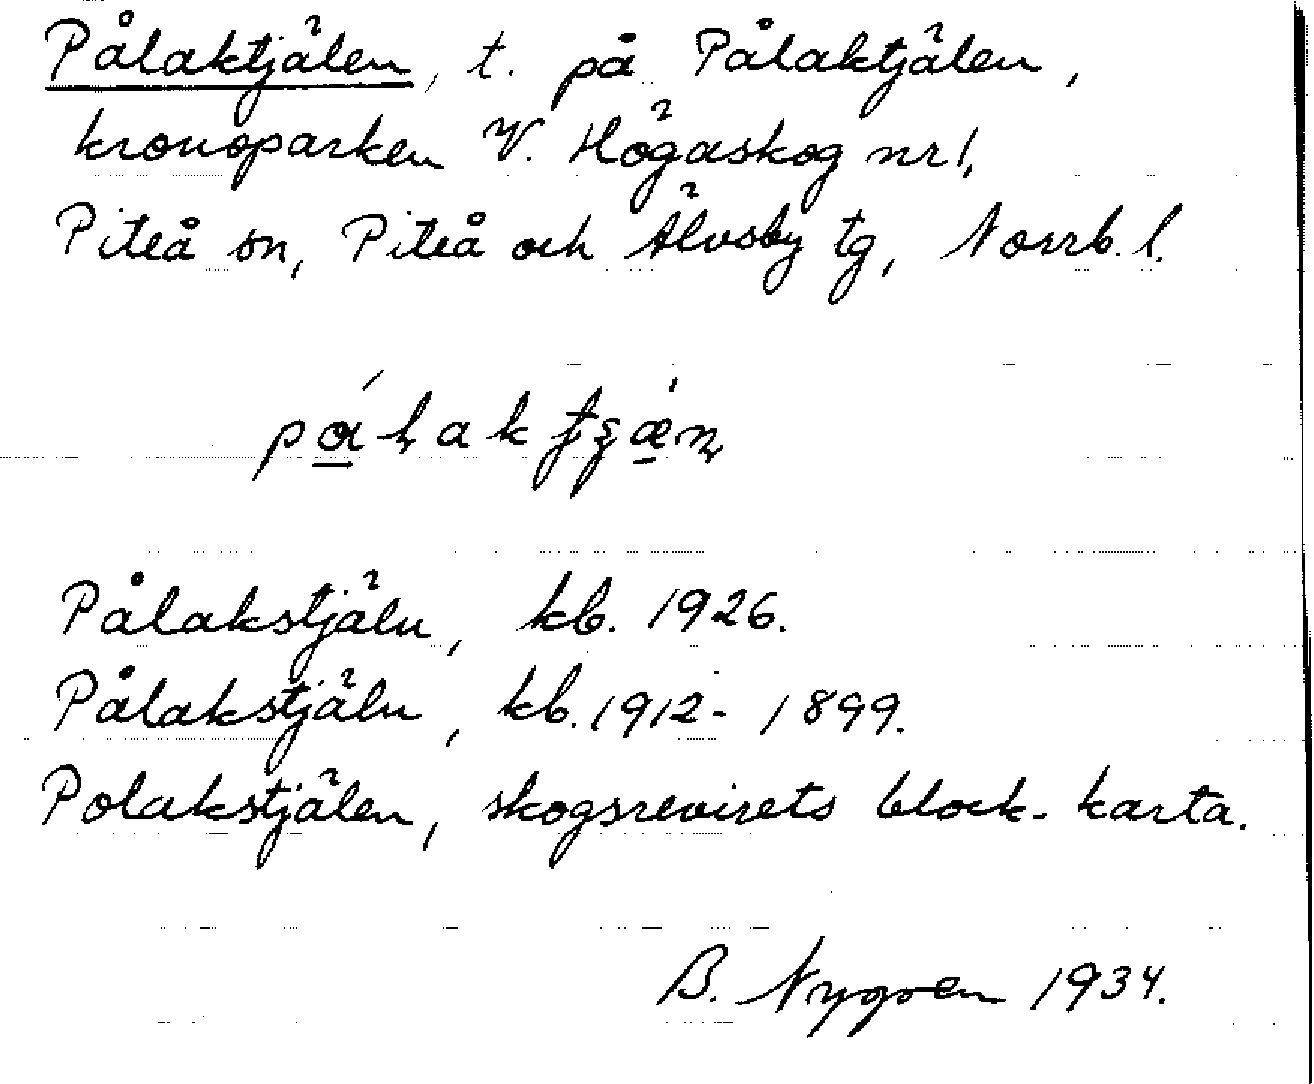 Pålaktjälen, t. på Pålaktjälen,
kronoparken V. Högaskog nr 1,
Piteå sn, Piteå och Älvsby tg, Norrb. l.
Pålakstjäln, kb. 1926.
Pålakstjäln, kb. 1912- 1899.
Polakstjälen, skogsrevirets block-karta.
B. Nygren 1934.